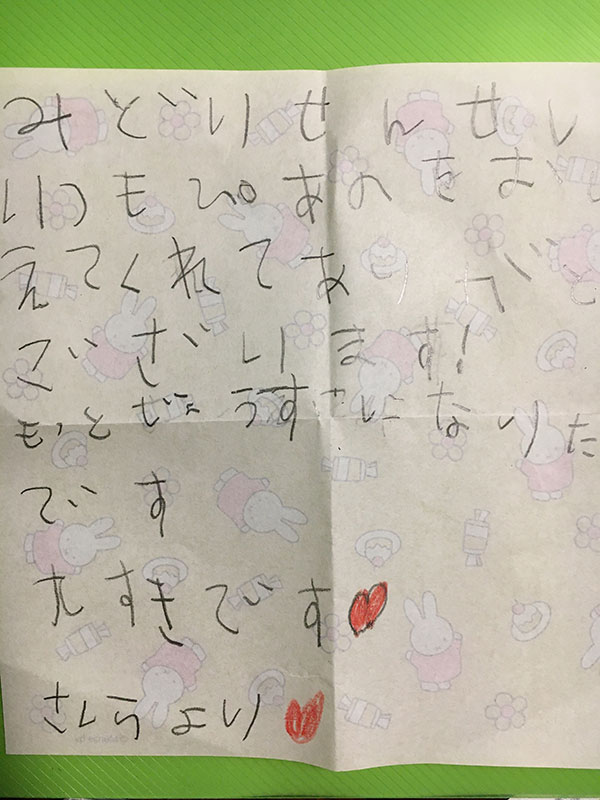 みどりせんせい
いつもぴあのをおし
えてくれてありがと
ございます!
もっとじょうずになりた
です
大すきです♥
さくらより♥